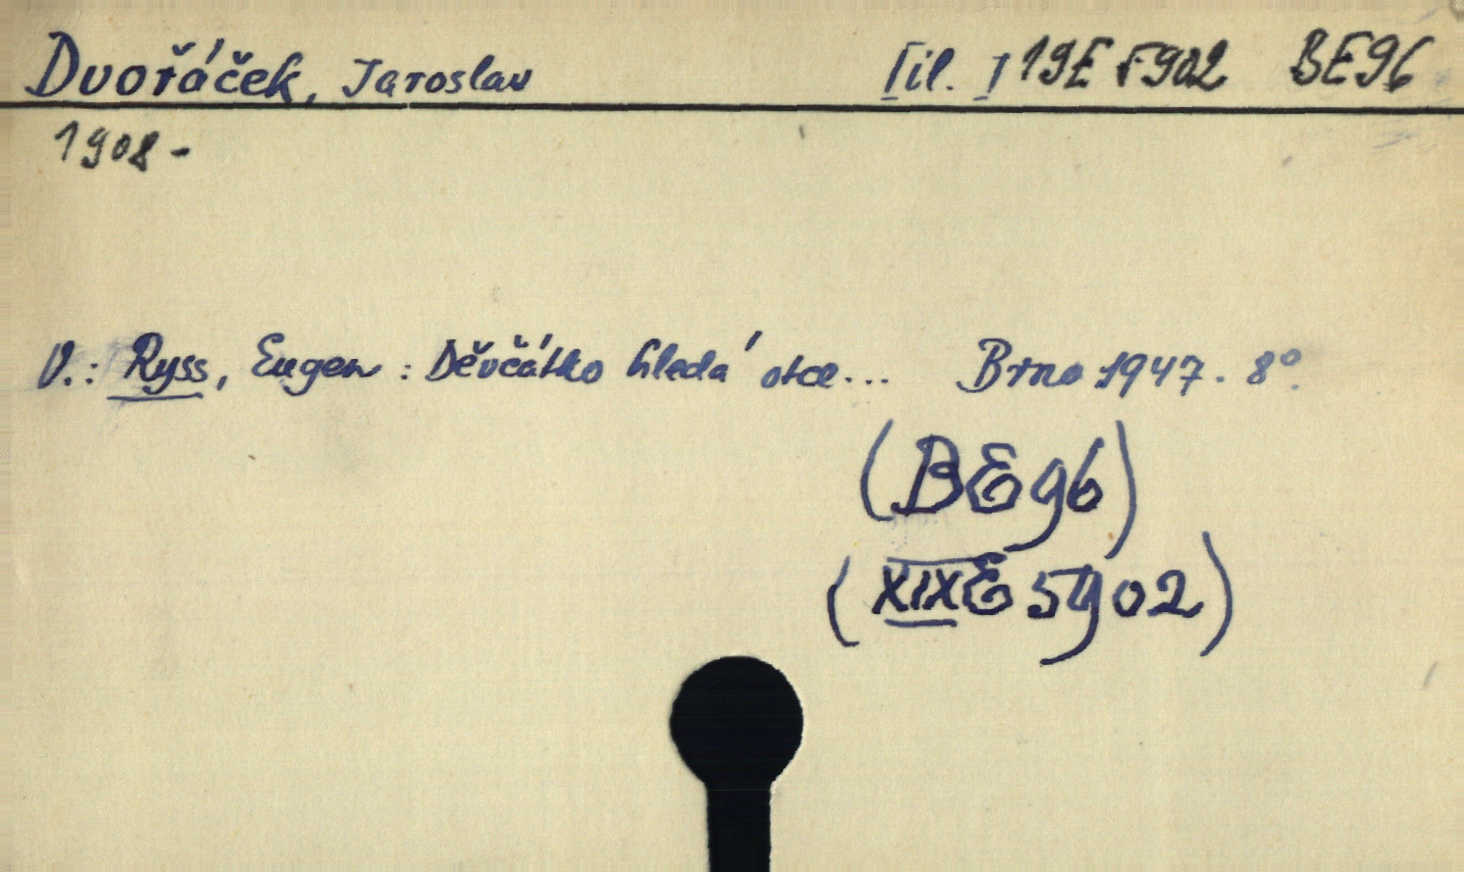 Dvořáček, Jaroslav [il.] 19E 5902 BE96
1908-
V.: Ryss, Eugen: Děvčátko hledá otce... Brno 1947. 8°.
(BE96)
(XIXE 5902)